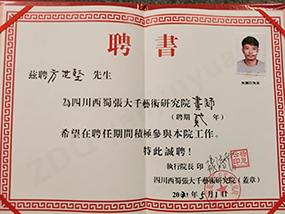 聘書
兹聘 方世堅 先生
為四川西蜀張大千藝術研究院 畫師
（聘期 贰 年）
希望在聘任期間積極參與本院工作。
特此誠聘！
執行院長 印
四川西蜀張大千藝術研究院（蓋章）
2021年5月1日